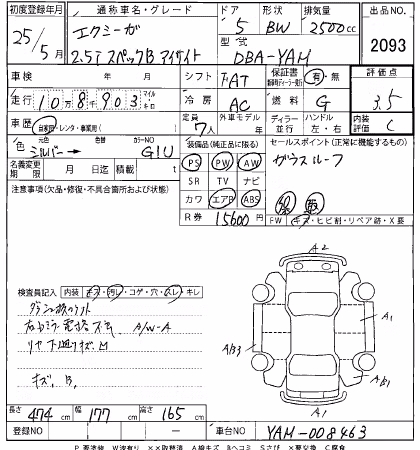 初度登録年月 通称車名・グレード ドア 形状 排気量 出品 NO.
25/5月 エクシーガ 5 BW 2500cc 2093
2.5i スペックB アイサイト 型式 DBA-YAM
車検 年 月 シフト FAT 保証書 有・無 評価点
走行 10万8千903 マイル キロ 冷房 AC 燃料 G 3.5
車歴 自家用・レンタ・事業用( ) 定員 7人 外車モデル 年 ディーラー 並行 ハンドル 左・右 内装評価 C
色 元色 シルバー → 色替 カラーNO G1U 装備品(純正品に限る) セールスポイント(正常に機能するもの)
名義変更期限 月 日迄 積載 t PS PW AW ガラスルーフ
注意事項(欠品・修復・不具合箇所および状態) SR TV ナビ
カワ エアB ABS
R券 15600円 FW キズ・ヒビ割・リペア跡・X要
検査員記入 内装 キズ・汚レ・コゲ・穴・スレ・キレ
A/W-A
キズ、B、
A2
A1
AB3
AB1
A1
長さ 474cm 幅 177cm 高さ 165cm
登録NO 車台NO YAM-008463
P 要塗装 W波有り ××取替済 A線キズ Bヘコミ Sさび ×要交換 C腐食